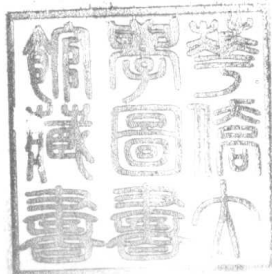 華僑大
學圖書
館藏書